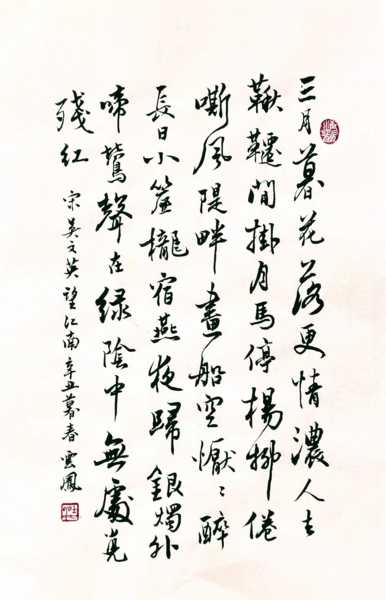 三月暮花落更情濃人去
鞦韆閒掛月馬停楊柳倦
嘶風隄畔畫船空懨〻醉
長日小簾櫳宿燕夜歸銀燭外
啼鶯聲在綠陰中無處覓
殘紅
宋吳文英望江南辛丑暮春雲鳳